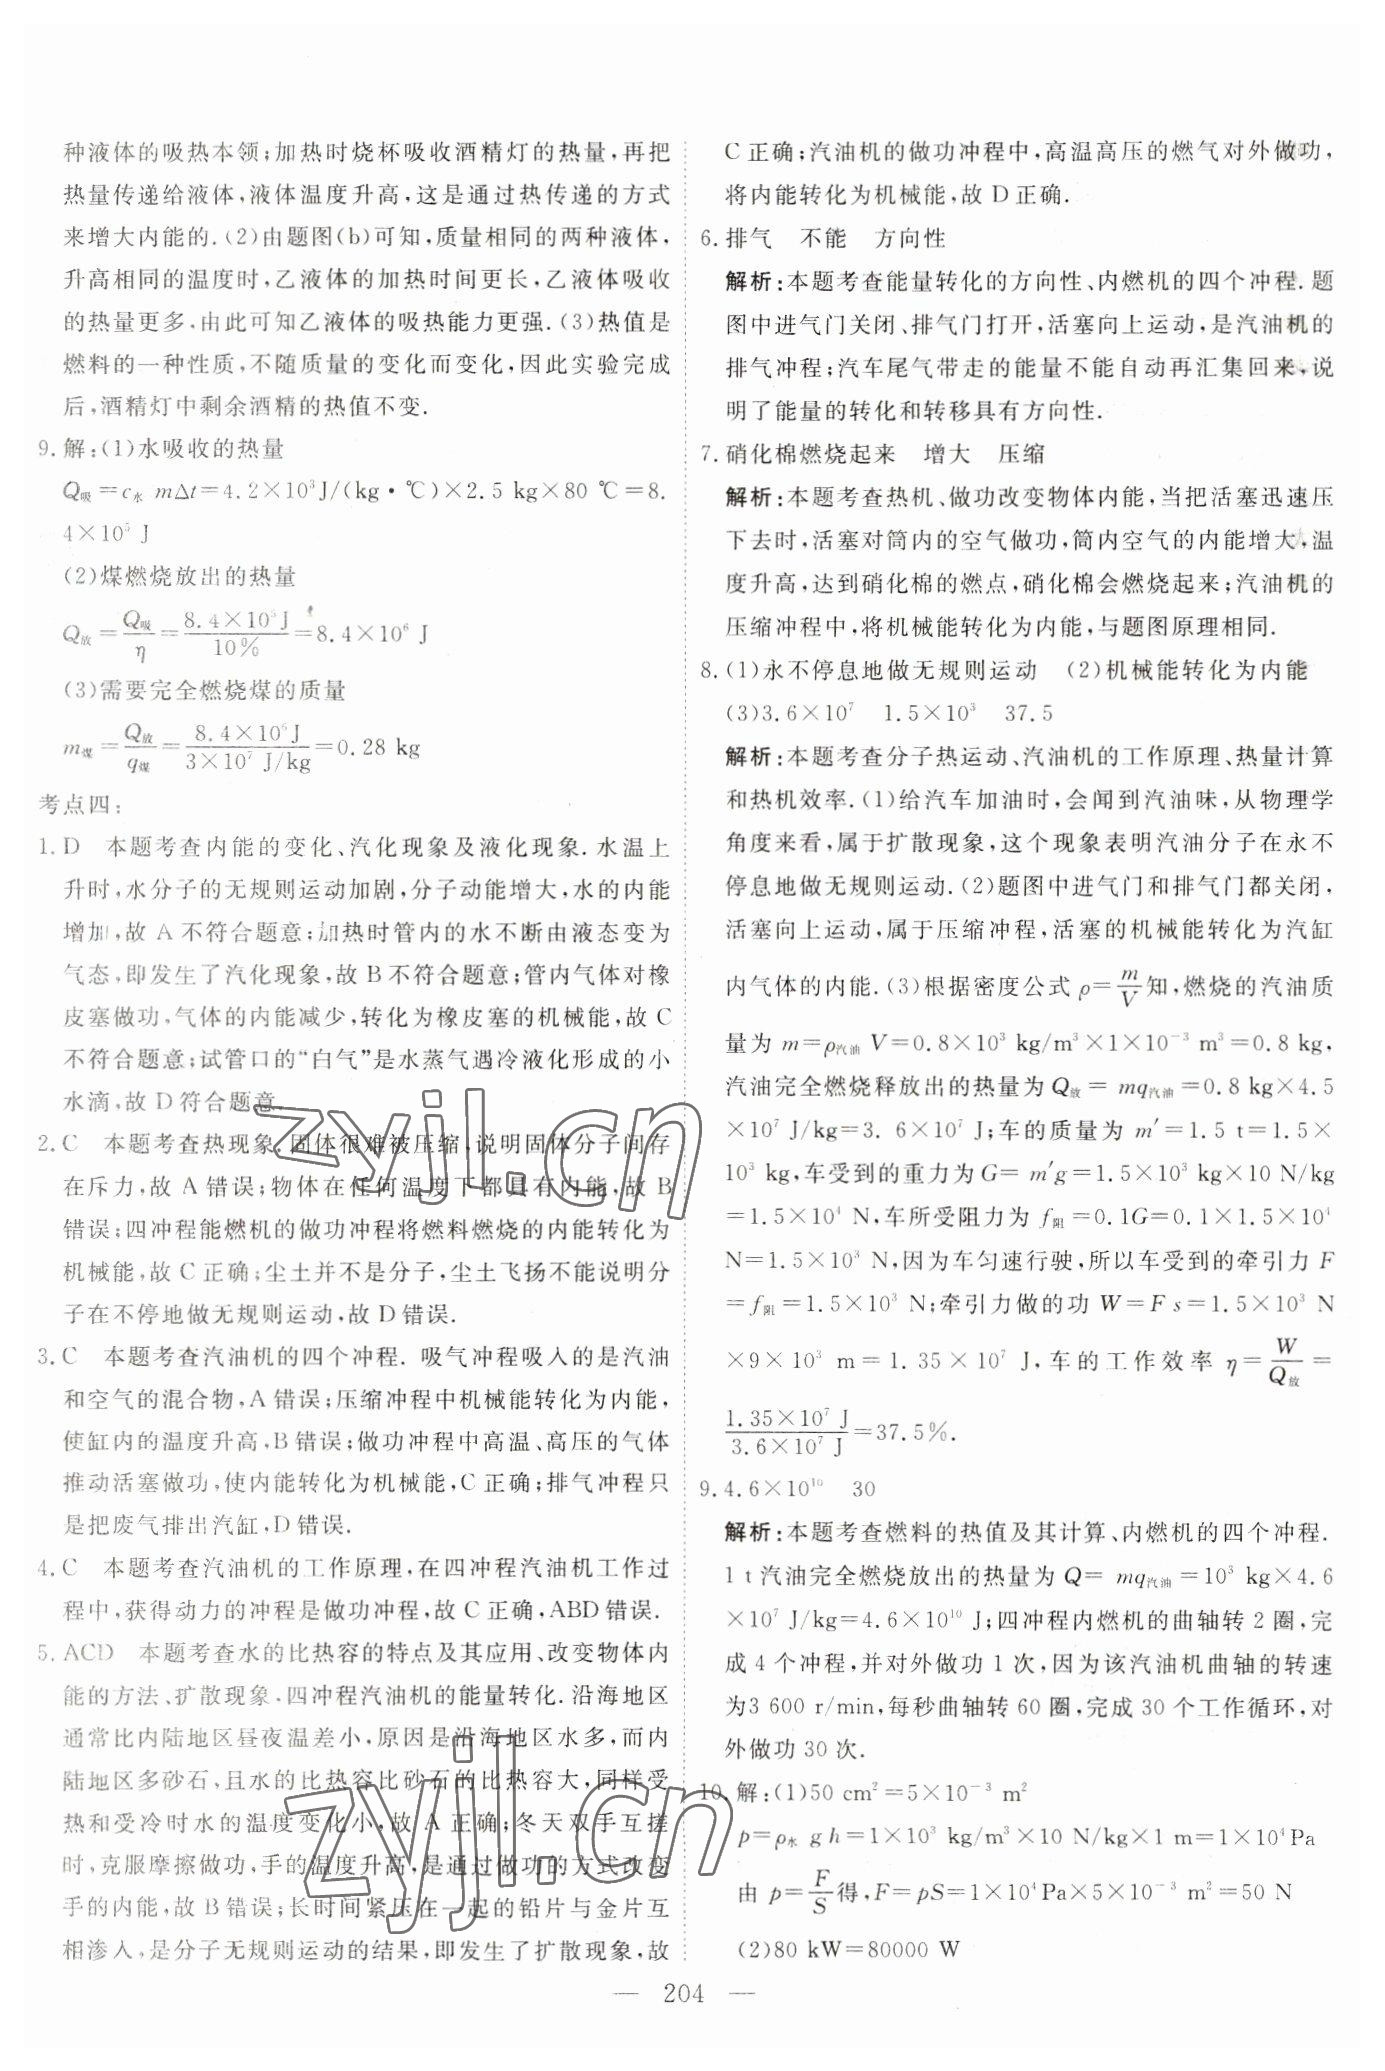 种液体的吸热本领;加热时烧杯吸收酒精灯的热量,再把
热量传递给液体,液体温度升高,这是通过热传递的方式
来增大内能的.(2)由题图(b)可知,质量相同的两种液体,
升高相同的温度时,乙液体的加热时间更长,乙液体吸收
的热量更多,由此可知乙液体的吸热能力更强.(3)热值是
燃料的一种性质,不随质量的变化而变化,因此实验完成
后,酒精灯中剩余酒精的热值不变.
9.解:(1)水吸收的热量
Q吸=c水 mΔt=4.2×10³J/(kg·℃)×2.5 kg×80 ℃=8.
4×10⁵ J
(2)煤燃烧放出的热量
Q放=Q吸/η=8.4×10⁵J/10%=8.4×10⁶ J
(3)需要完全燃烧煤的质量
m煤=Q放/q煤=8.4×10⁶J/3×10⁷ J/kg=0.28 kg
考点四:
1.D 本题考查内能的变化、汽化现象及液化现象.水温上
升时,水分子的无规则运动加剧,分子动能增大,水的内能
增加,故 A 不符合题意;加热时管内的水不断由液态变为
气态,即发生了汽化现象,故 B 不符合题意;管内气体对橡
皮塞做功,气体的内能减少,转化为橡皮塞的机械能,故 C
不符合题意;试管口的“白气”是水蒸气遇冷液化形成的小
水滴,故 D 符合题意.
2.C 本题考查热现象.固体很难被压缩,说明固体分子间存
在斥力,故 A 错误;物体在任何温度下都具有内能,故 B
错误;四冲程能燃机的做功冲程将燃料燃烧的内能转化为
机械能,故 C 正确;尘土并不是分子,尘土飞扬不能说明分
子在不停地做无规则运动,故 D 错误.
3.C 本题考查汽油机的四个冲程. 吸气冲程吸入的是汽油
和空气的混合物,A 错误;压缩冲程中机械能转化为内能,
使缸内的温度升高,B 错误;做功冲程中高温、高压的气体
推动活塞做功,使内能转化为机械能,C 正确;排气冲程只
是把废气排出汽缸,D 错误.
4.C 本题考查汽油机的工作原理,在四冲程汽油机工作过
程中,获得动力的冲程是做功冲程,故 C 正确,ABD 错误.
5.ACD 本题考查水的比热容的特点及其应用、改变物体内
能的方法、扩散现象、四冲程汽油机的能量转化.沿海地区
通常比内陆地区昼夜温差小,原因是沿海地区水多,而内
陆地区多砂石,且水的比热容比砂石的比热容大,同样受
热和受冷时水的温度变化小,故 A 正确;冬天双手互搓
时,克服摩擦做功,手的温度升高,是通过做功的方式改变
手的内能,故 B 错误;长时间紧压在一起的铅片与金片互
相渗入,是分子无规则运动的结果,即发生了扩散现象,故
C 正确;汽油机的做功冲程中,高温高压的燃气对外做功,
将内能转化为机械能,故 D 正确.
6.排气 不能 方向性
解析:本题考查能量转化的方向性、内燃机的四个冲程.题
图中进气门关闭、排气门打开,活塞向上运动,是汽油机的
排气冲程;汽车尾气带走的能量不能自动再汇集回来,说
明了能量的转化和转移具有方向性.
7.硝化棉燃烧起来 增大 压缩
解析:本题考查热机、做功改变物体内能,当把活塞迅速压
下去时,活塞对筒内的空气做功,筒内空气的内能增大,温
度升高,达到硝化棉的燃点,硝化棉会燃烧起来;汽油机的
压缩冲程中,将机械能转化为内能,与题图原理相同.
8.(1)永不停息地做无规则运动 (2)机械能转化为内能
(3)3.6×10⁷ 1.5×10³ 37.5
解析:本题考查分子热运动、汽油机的工作原理、热量计算
和热机效率.(1)给汽车加油时,会闻到汽油味,从物理学
角度来看,属于扩散现象,这个现象表明汽油分子在永不
停息地做无规则运动.(2)题图中进气门和排气门都关闭,
活塞向上运动,属于压缩冲程,活塞的机械能转化为汽缸
内气体的内能.(3)根据密度公式 ρ=m/V知,燃烧的汽油质
量为 m=ρ汽油 V=0.8×10³ kg/m³×1×10⁻³ m³=0.8 kg,
汽油完全燃烧释放出的热量为 Q放= mq汽油=0.8 kg×4.5
×10⁷ J/kg=3. 6×10⁷ J;车的质量为 m′=1.5 t=1.5×
10³ kg,车受到的重力为 G= m′g=1.5×10³ kg×10 N/kg
=1.5×10⁴ N,车所受阻力为 f阻=0.1G=0.1×1.5×10⁴
N=1.5×10³ N,因为车匀速行驶,所以车受到的牵引力 F
=f阻=1.5×10³ N;牵引力做的功 W=F s=1.5×10³ N
×9×10³ m=1. 35×10⁷ J,车的工作效率 η=W/Q放=
1.35×10⁷ J/3.6×10⁷ J=37.5%.
9.4.6×10¹⁰ 30
解析:本题考查燃料的热值及其计算、内燃机的四个冲程.
1 t汽油完全燃烧放出的热量为 Q= mq汽油=10³ kg×4.6
×10⁷ J/kg=4.6×10¹⁰ J;四冲程内燃机的曲轴转 2 圈,完
成 4 个冲程,并对外做功 1 次,因为该汽油机曲轴的转速
为3 600 r/min,每秒曲轴转 60 圈,完成 30 个工作循环,对
外做功 30 次.
10.解:(1)50 cm²=5×10⁻³ m²
p=ρ水 g h=1×10³ kg/m³×10 N/kg×1 m=1×10⁴Pa
由 p=F/S得,F=pS=1×10⁴Pa×5×10⁻³ m²=50 N
(2)80 kW=80000 W
— 204 —
zyjl.cn
zyjl.cn